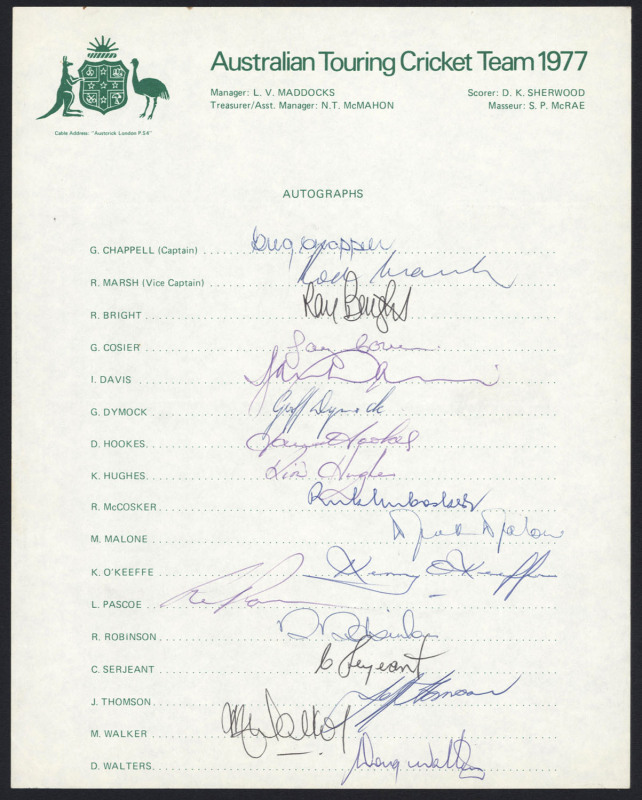 Australian Touring Cricket Team 1977
Manager: L. V. MADDOCKS Scorer: D. K. SHERWOOD
Treasurer/Asst. Manager: N.T. McMAHON Masseur: S. P. McRAE
Cable Address: "Austcrick London P.S.4"
AUTOGRAPHS
G. CHAPPELL (Captain) Greg Chappell
R. MARSH (Vice Captain) Rod Marsh
R. BRIGHT Ray Bright
G. COSIER Gary Cosier
I. DAVIS Ian Davis
G. DYMOCK Geoff Dymock
D. HOOKES David Hookes
K. HUGHES Kim Hughes
R. McCOSKER Rick McCosker
M. MALONE Mick Malone
K. O'KEEFFE Kerry O'Keeffe
L. PASCOE Len Pascoe
R. ROBINSON R. Robinson
C. SERJEANT C Serjeant
J. THOMSON Jeff Thomson
M. WALKER M Walker
D. WALTERS Doug Walters